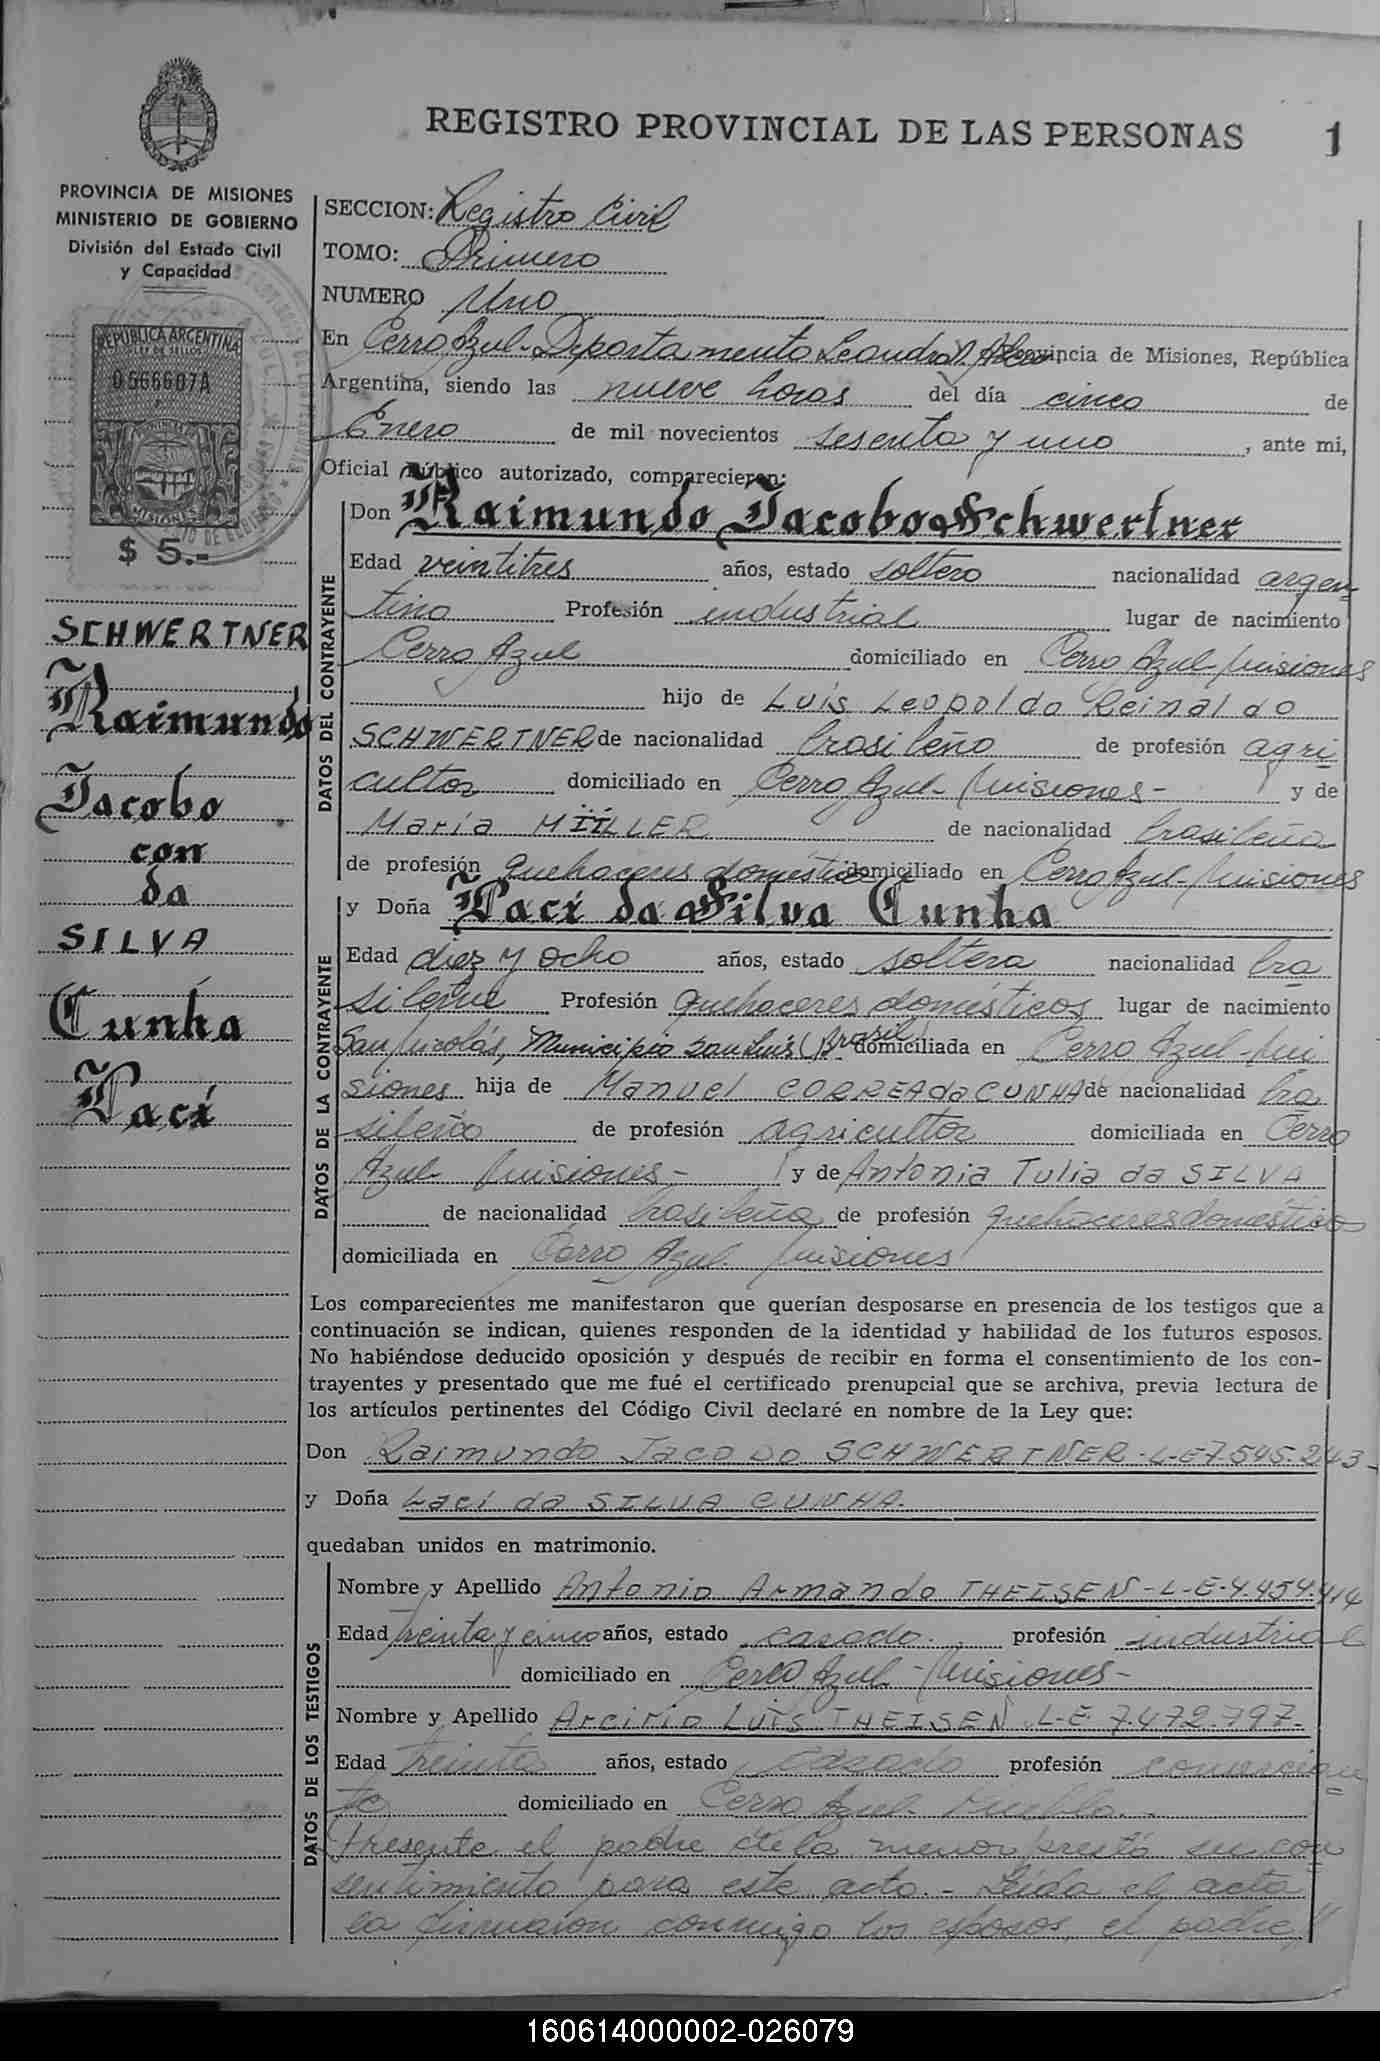 REGISTRO PROVINCIAL DE LAS PERSONAS 1
PROVINCIA DE MISIONES
MINISTERIO DE GOBIERNO
División del Estado Civil
y Capacidad
REPUBLICA ARGENTINA
LEY DE SELLOS
0566607A
MISIONES
$ 5.-
SCHWERTNER
Raimundo
Jacobo
con
da
SILVA
Cunha
Laci
SECCION: Registro Civil
TOMO: Primero
NUMERO Uno
En Cerro Azul - Departamento Leandro N. Alem - Provincia de Misiones, República
Argentina, siendo las nueve horas del día cinco de
Enero de mil novecientos sesenta y uno, ante mi,
Oficial Público autorizado, comparecieron:
DATOS DEL CONTRAYENTE
Don Raimundo Jacobo Schwertner
Edad veintitres años, estado soltero nacionalidad argen
tino Profesión industrial lugar de nacimiento
Cerro Azul domiciliado en Cerro Azul Misiones
hijo de Luis Leopoldo Reinaldo
SCHWERTNER de nacionalidad brasileño de profesión agri
cultor domiciliado en Cerro Azul - Misiones - y de
Maria MÜLLER de nacionalidad brasileña
de profesión quehaceres domésticos domiciliado en Cerro Azul - Misiones
DATOS DE LA CONTRAYENTE
y Doña Laci da Silva Cunha
Edad diez y ocho años, estado soltera nacionalidad bra
sileña Profesión quehaceres domésticos lugar de nacimiento
San Nicolás, Municipio San Luis (Brasil) domiciliada en Cerro Azul - Mi
siones hija de Manuel CORREA da CUNHA de nacionalidad bra
sileño de profesión agricultor domiciliada en Cerro
Azul Misiones - y de Antonia Tulia da SILVA
de nacionalidad brasileña de profesión quehaceres domésticos
domiciliada en Cerro Azul - Misiones
Los comparecientes me manifestaron que querían desposarse en presencia de los testigos que a
continuación se indican, quienes responden de la identidad y habilidad de los futuros esposos.
No habiéndose deducido oposición y después de recibir en forma el consentimiento de los con-
trayentes y presentado que me fué el certificado prenupcial que se archiva, previa lectura de
los artículos pertinentes del Código Civil declaré en nombre de la Ley que:
Don Raimundo Jacobo SCHWERTNER - L-E 7.545.243 -
y Doña Laci da SILVA CUNHA.
quedaban unidos en matrimonio.
DATOS DE LOS TESTIGOS
Nombre y Apellido Antonio Armando THEISEN - L-E-4.454.414
Edad treinta y cinco años, estado casado. profesión industrial
domiciliado en Cerro Azul - Misiones -
Nombre y Apellido Arcirio Luis THEISEN L-E 7.472.797 -
Edad treinta años, estado casado profesión comercian
te domiciliado en Cerro Azul - Pueblo -
Presente el padre de la menor prestó su con
sentimiento para este acto. - Leída el acta
la firmaron conmigo los esposos, el padre,"
160614000002-026079